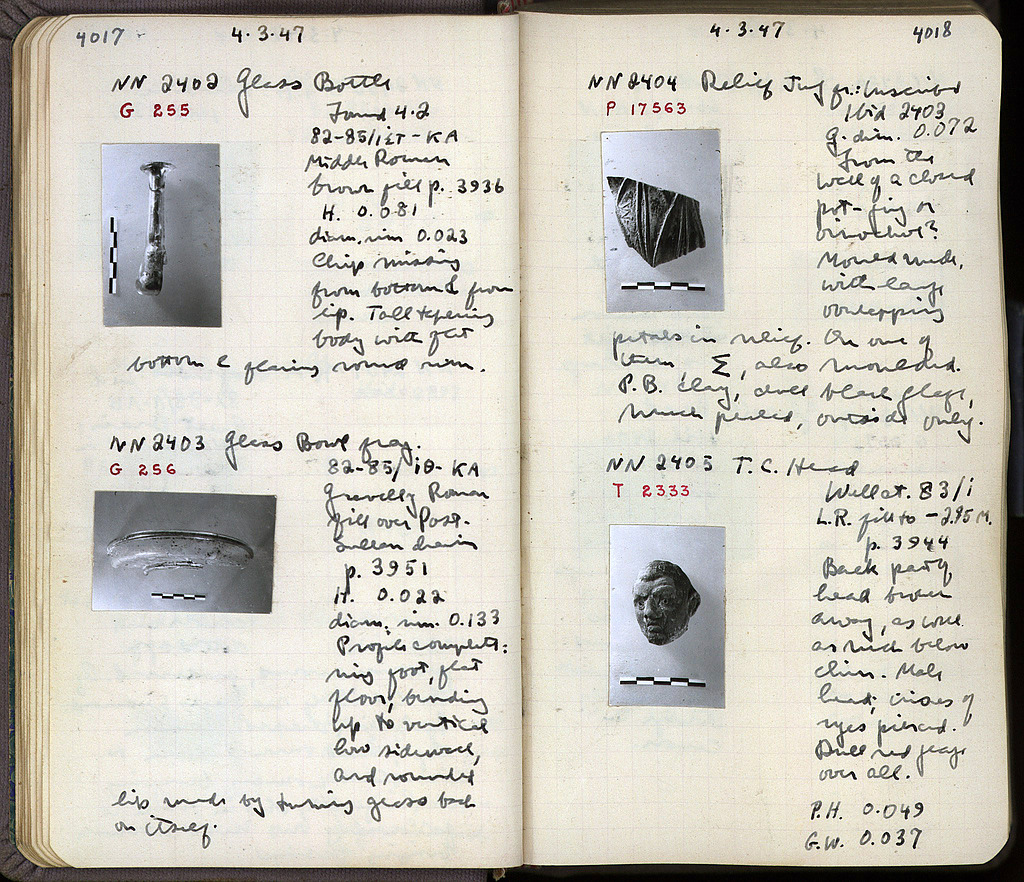 4017
4·3·47
NN 2402 Glass Bottle
G 255
Found 4·2
82-85/ιΣΤ-ΚΑ
Middle Roman
brown fill p. 3936
H. 0.081
diam. rim 0.023
Chip missing
from bottom & from
lip. Tall tapering
body with flat
bottom & flaring round rim.
NN 2403 Glass Bowl frag.
G 256
82-85/ιΘ-ΚΑ
Gravelly Roman
fill over Post-
Sullan drain
p. 3951
H. 0.022
diam. rim. 0.133
Profile complete:
ring foot, flat
floor, bending
up to vertical
low sidewall,
and rounded
lip made by turning glass back
on itself.
4·3·47
4018
NN 2404 Relief Jug fr.: Inscribed
P 17563
Ibid 2403
G. dim. 0.072
From the
wall of a closed
pot - jug or
oinochoe?
Mould made,
with large
overlapping
petals in relief. On one of
them, Σ, also moulded.
P.B. clay, dull black glaze,
much peeled, outside only.
NN 2405 T.C. Head
T 2333
Well at. 83/ι
L.R. fill to -2.95 M.
p. 3944
Back part of
head broken
away, as well
as neck below
chin. Male
head; irises of
eyes pierced.
Dull red glaze
over all.
P.H. 0.049
G.W. 0.037